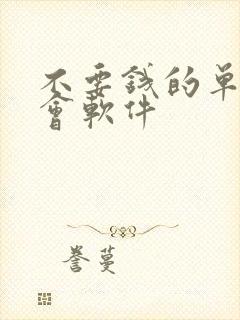 不要錢的單
會軟件
誊蔓